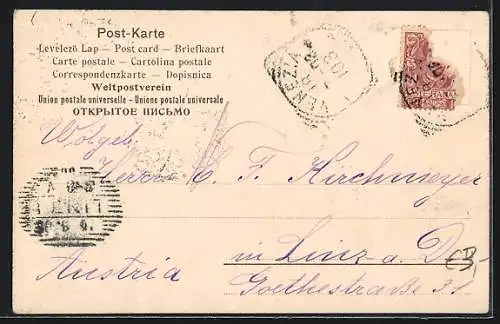 Post-Karte
Levelező Lap — Post card — Briefkaart
Carte postale — Cartolina postale
Correspondenzkarte — Dopisnica
Weltpostverein
Union postale universelle - Unione postale universale
ОТКРЫТОЕ ПИСЬМО
VENEZIA
Wolgeb.
Herrn C. F. Kirchmeyer
in Linz a. D.
Austria
Goethestrasse 31